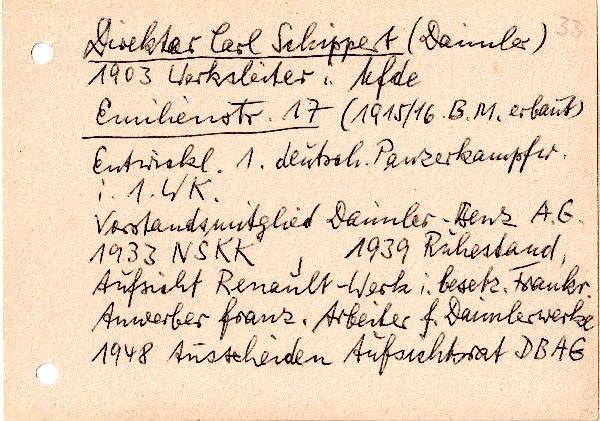 33
Direktor Carl Schippert (Daimler)
1903 Werksleiter i. Ufde
Emilienstr. 17 (1915/16 B.M. erbaut)
Entwickl. 1. deutsch. Panzerkampfw.
i. 1. WK.
Vorstandsmitglied Daimler-Benz A.G.
1933 NSKK, 1939 Ruhestand,
Aufsicht Renault-Werk i. besetz. Frankr.
Anwerber franz. Arbeiter f. Daimlerwerke
1948 Ausscheiden Aufsichtsrat DBAG